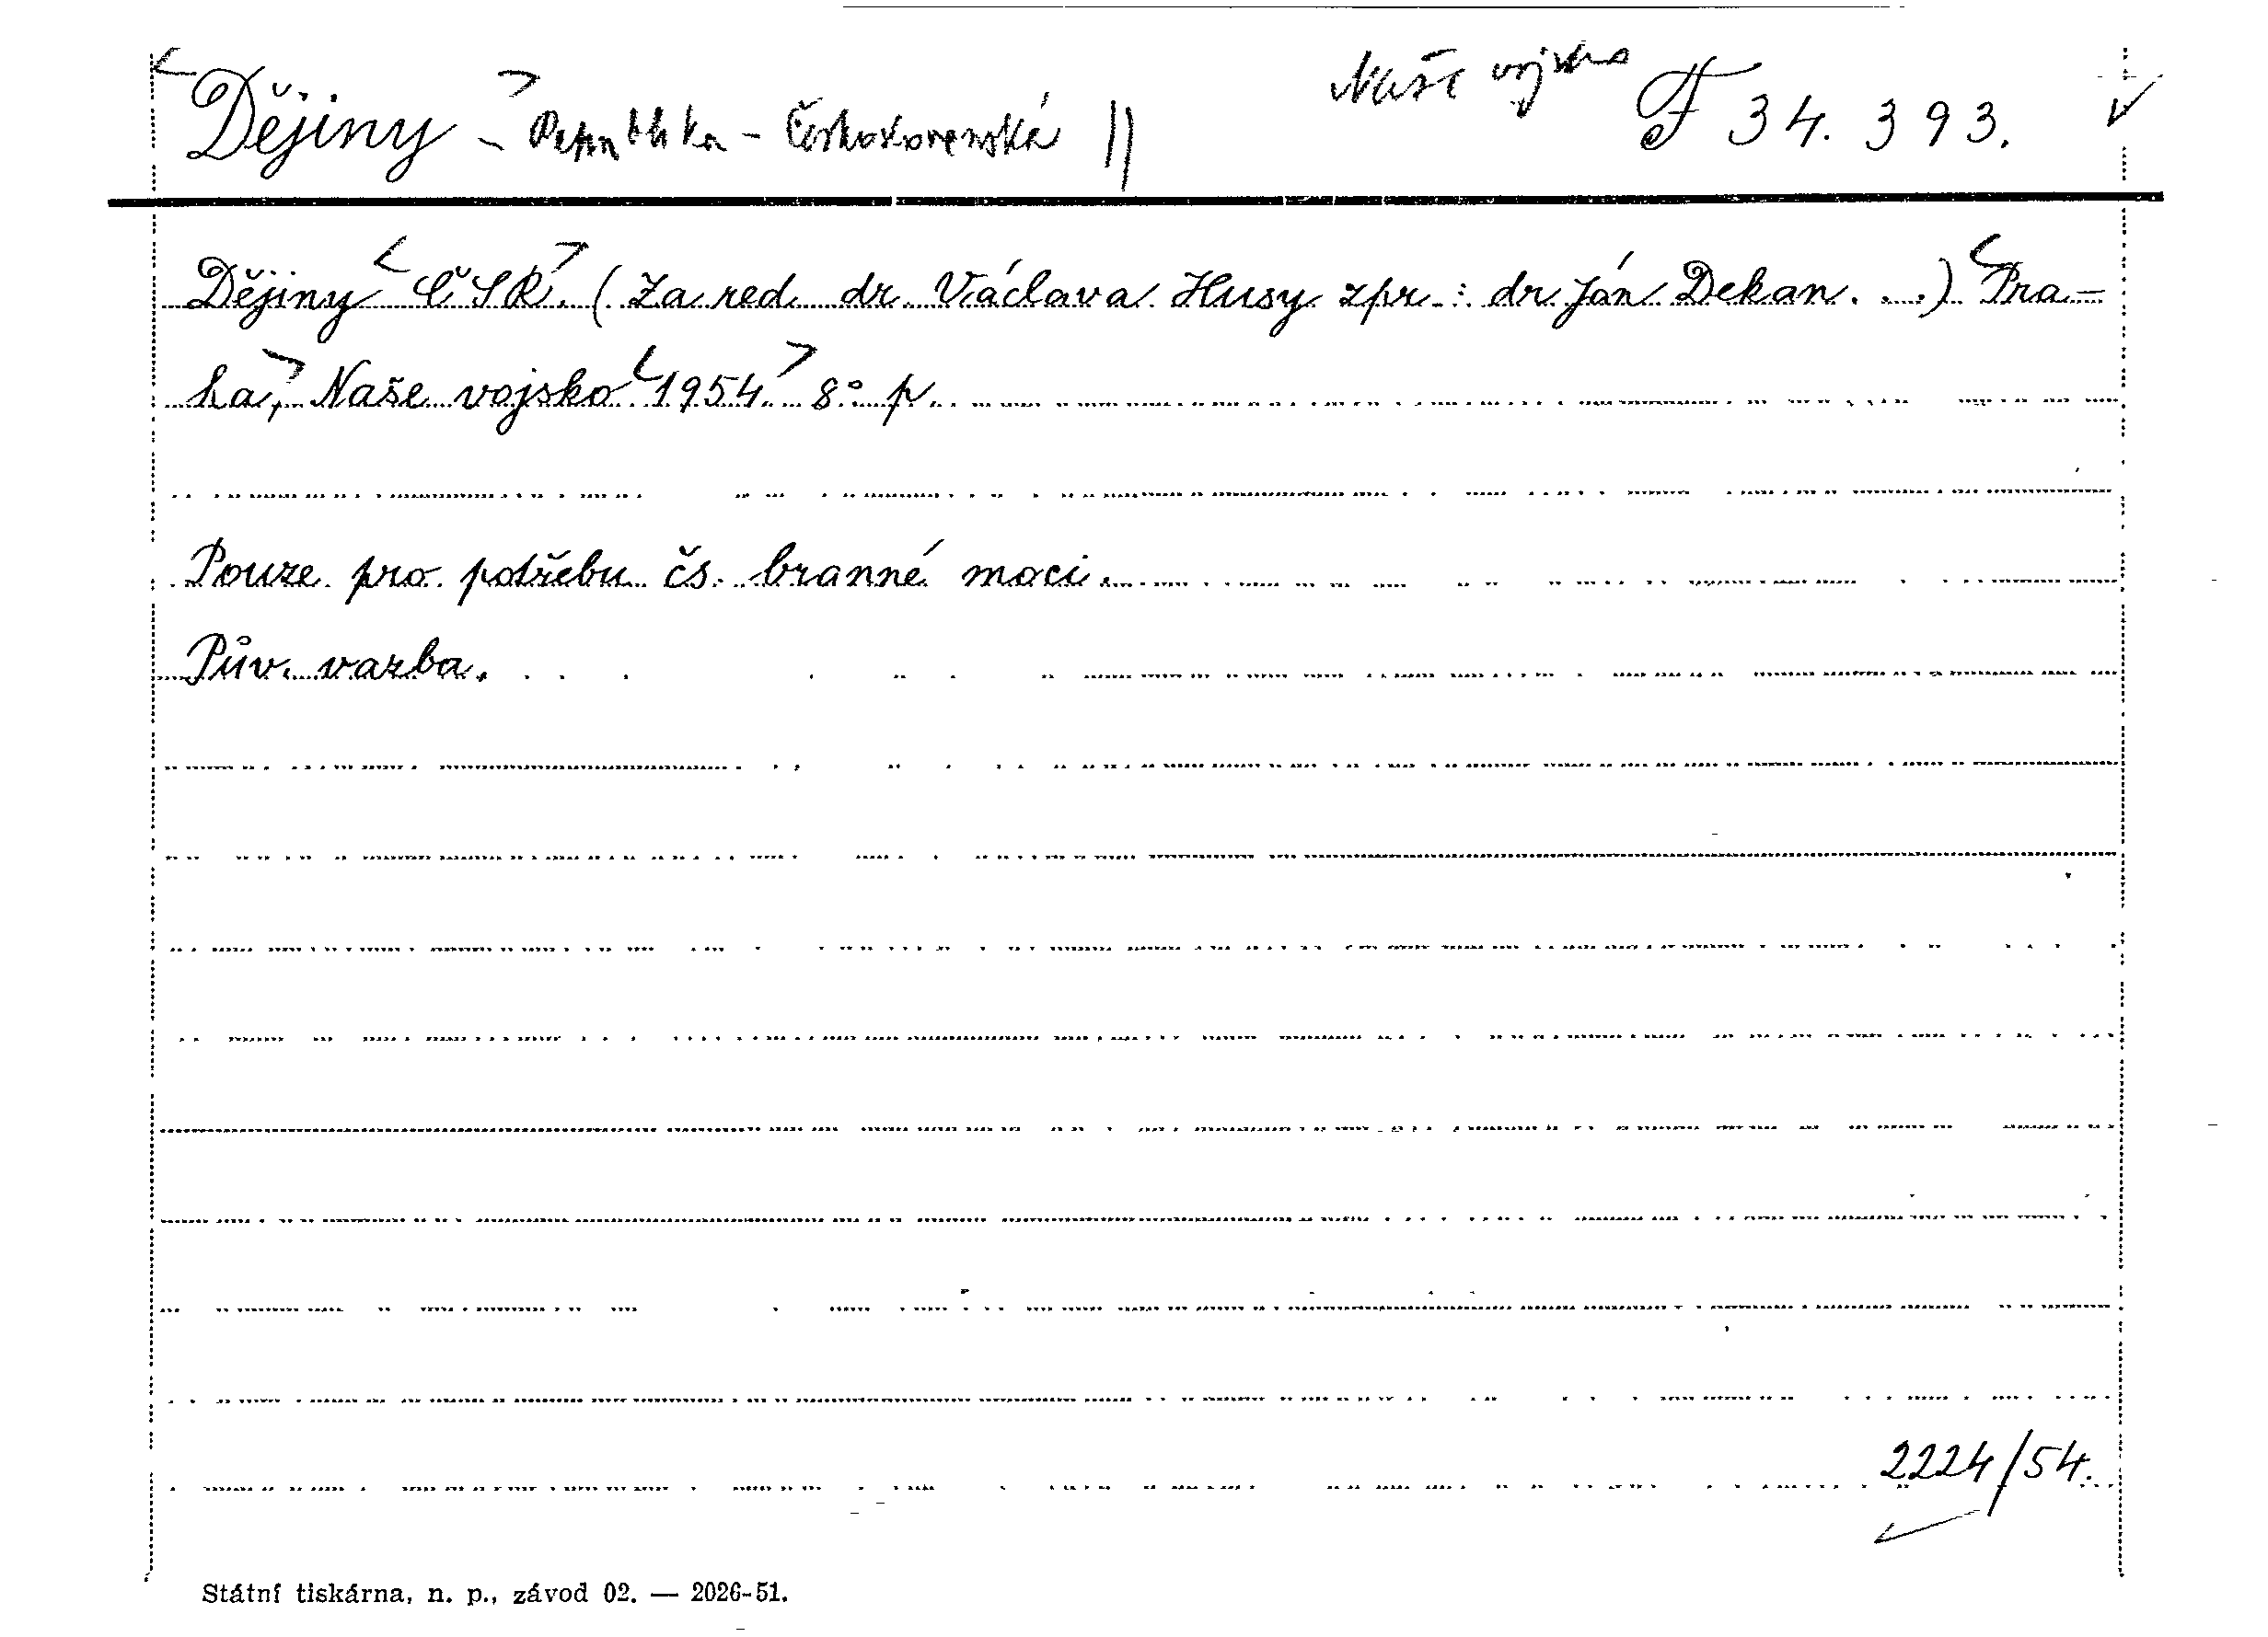 Dějiny - Republika - Československá || Naše vojsko F 34.393.
Dějiny ČSR. (Za red. dr. Václava Husy zpr.: dr. Ján Dekan. ...) Pra-
ha, Naše vojsko 1954. 8° p.
Pouze pro potřebu čs. branné moci.
Pův. vazba.
2224/54.
Státní tiskárna, n. p., závod 02. — 2026-51.